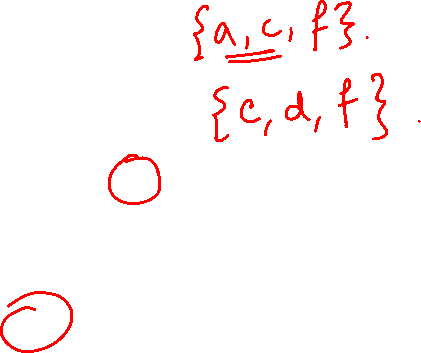 {a, c, f}.
{c, d, f}.